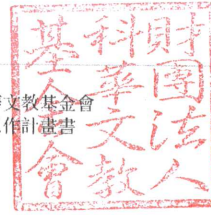 財團法人
科華文教
基金會
文教基金會
作計畫書